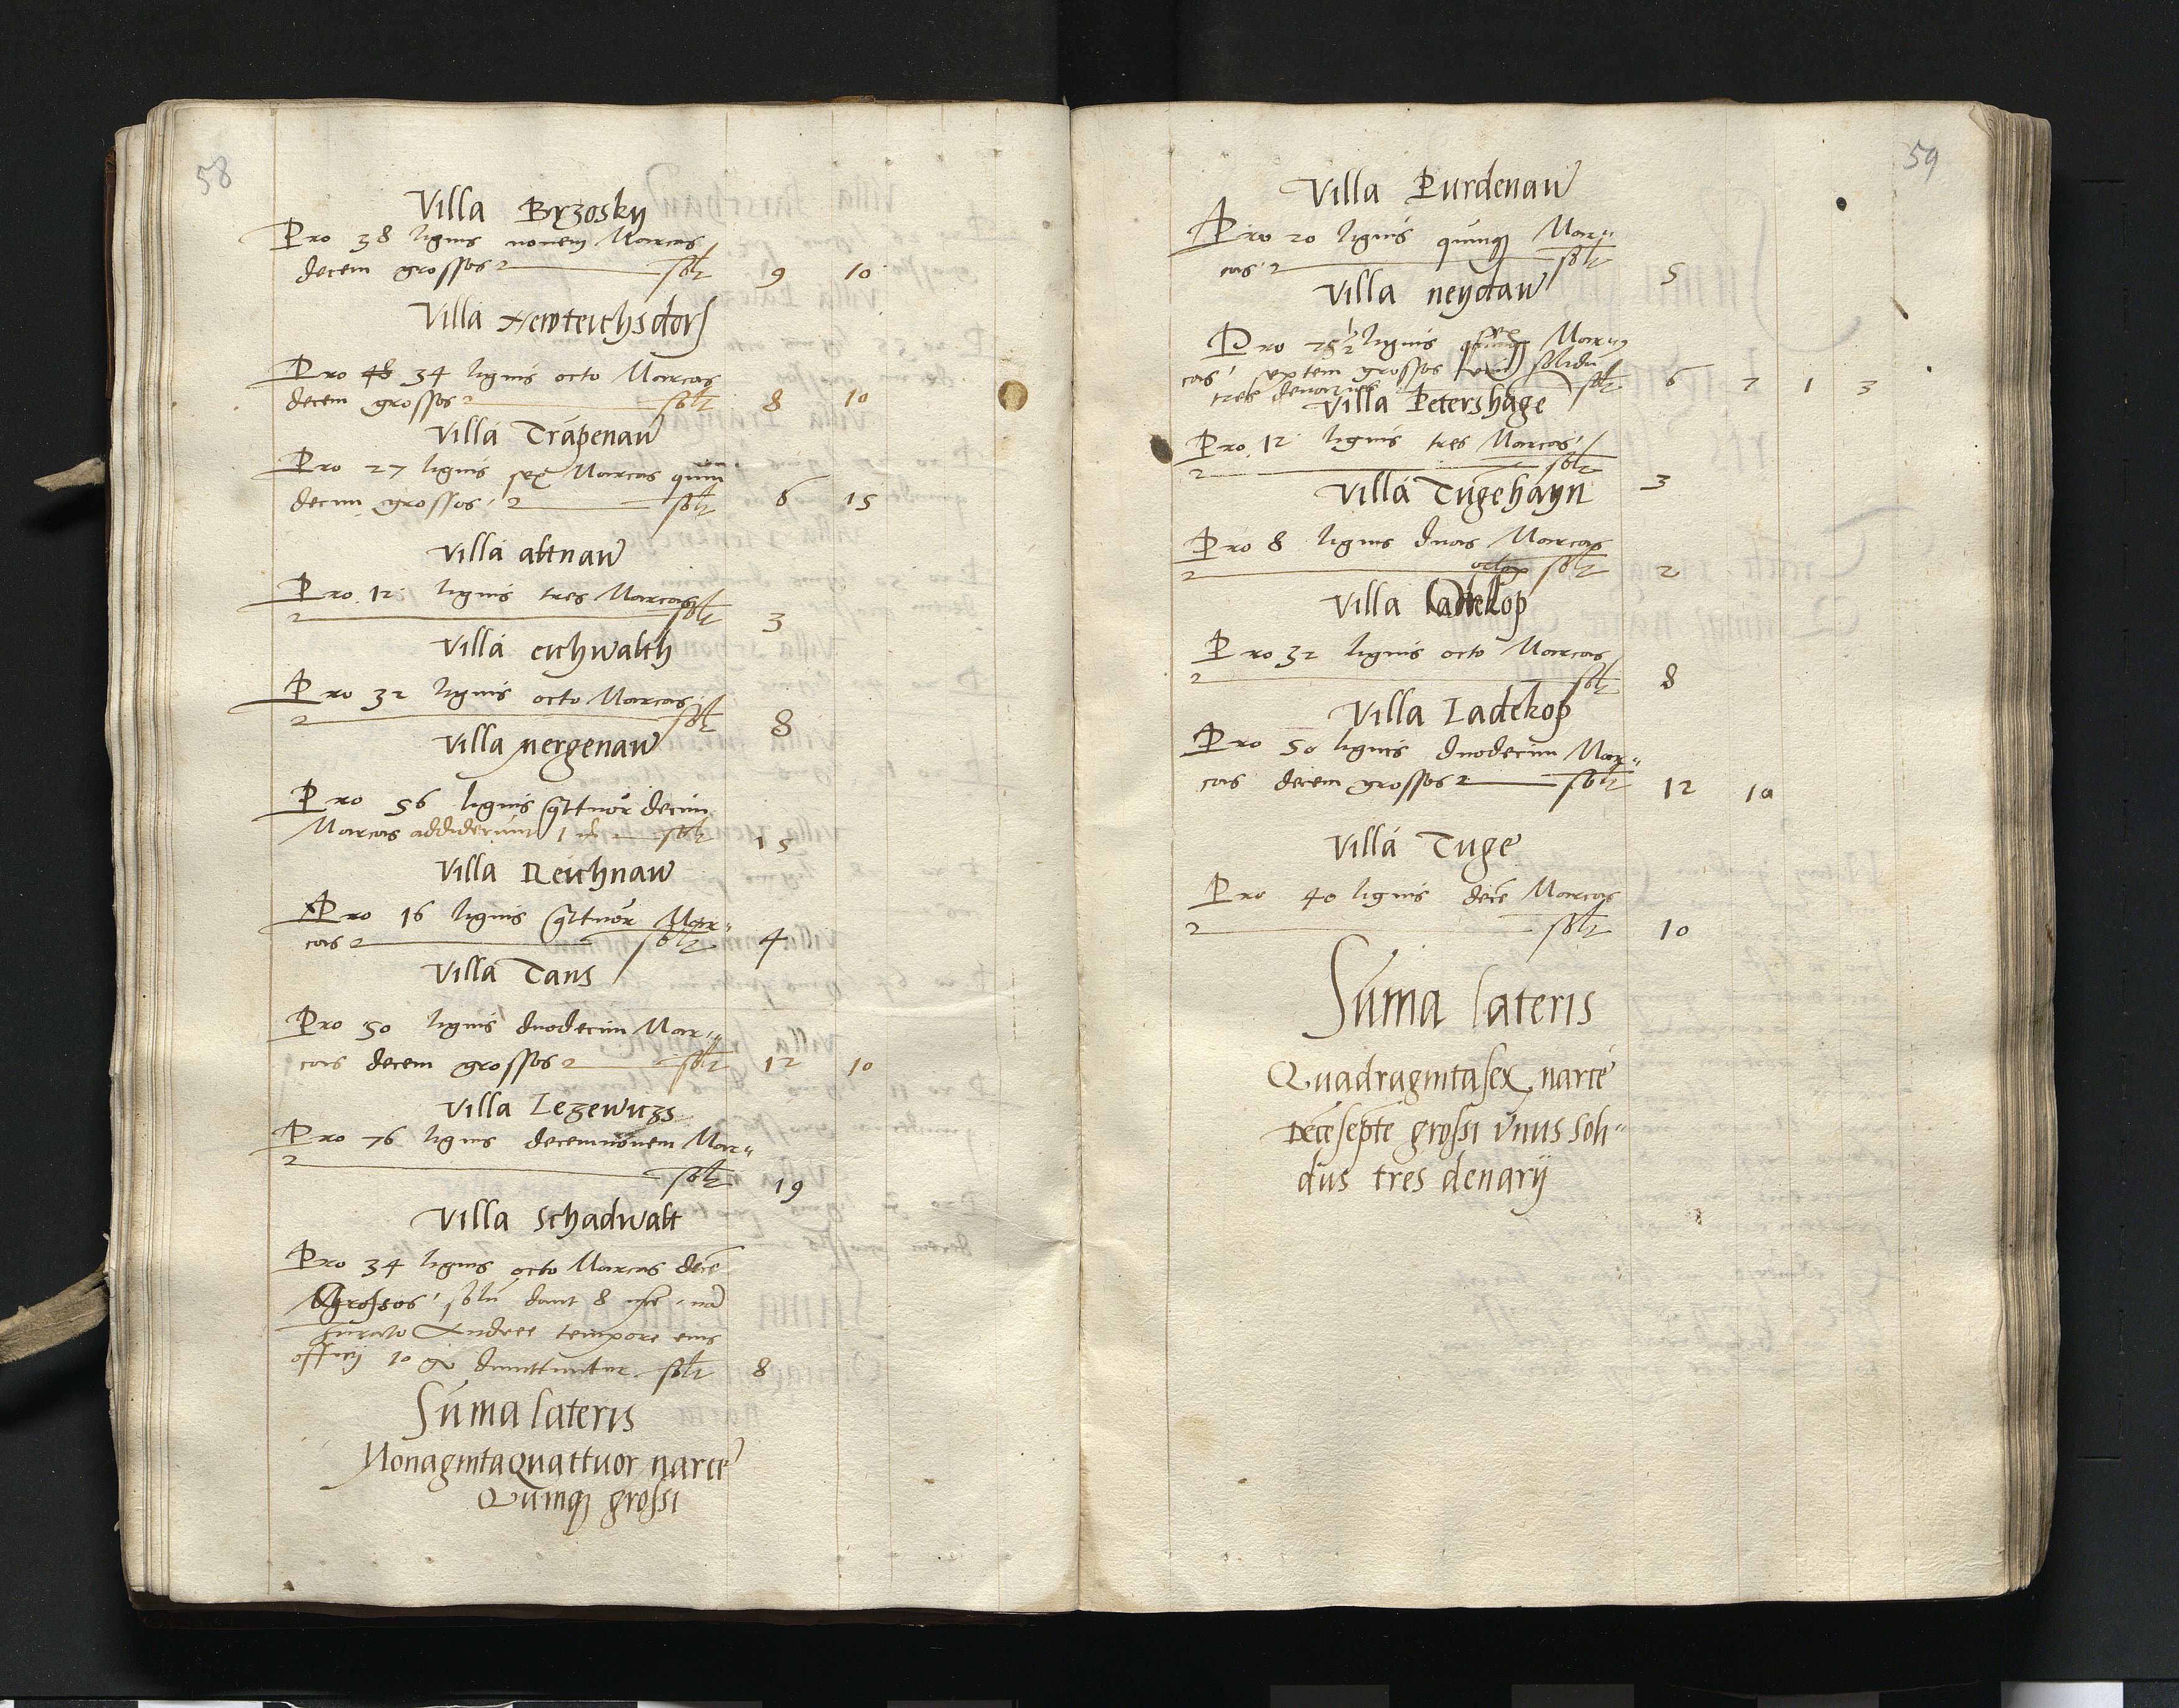 58
Villa Brzosky
Pro 38 lignis novem Marcas
decem grossos solt 9 10
Villa Newteichsdorf
Pro 48 34 lignis octo Marcas
decem grossos solt 8 10
Villa Trapenaw
Pro 27 lignis sex Marcas quin
decim grossos solt 6 15
Villa altnaw
Pro 12 lignis tres Marcas
solt 3
Villa eichwalth
Pro 32 lignis octo Marcas
solt 8
Villa nergenaw
Pro 56 lignis qttuor decim
Marcas addiderunt 1 solt 15
Villa Reichnaw
Pro 16 lignis qttuor Mar„
cas solt 4
Villa Tans
Pro 50 lignis duodecim Mar„
cas decem grossos solt 12 10
Villa Lezewiczs
Pro 76 lignis decemnovem Mar„
solt 19
Villa Schadwalt
Pro 34 lignis octo Marcas decē
Grossos solū dant 8
Andree tempore eius
officij 10 dimittuntur solt 8
Suma lateris
Nonagintaquattuor marce
Quinq grossi
59
Villa Purdenaw
Pro 20 lignis quinq Mar„
cas solt 5
Villa neydaw
Pro 25½ lignis sex Mar„
cas septem grossos solidū
tres denarios solt 6 7 1 3
Villa Petershage
Pro 12 lignis tres Marcas
solt 3
Villa Tugehayn
Pro 8 lignis duas Marcas
solt 2
Villa Ladekop
Pro 32 lignis octo Marcas
solt 8
Villa Ladekop
Pro 50 lignis duodecim Mar„
cas decem grossos solt 12 10
Villa Tuge
Pro 40 lignis decē Marcas
solt 10
Suma lateris
Quadragintasex marce
Decēseptē grossi vnus soli„
dus tres denarij